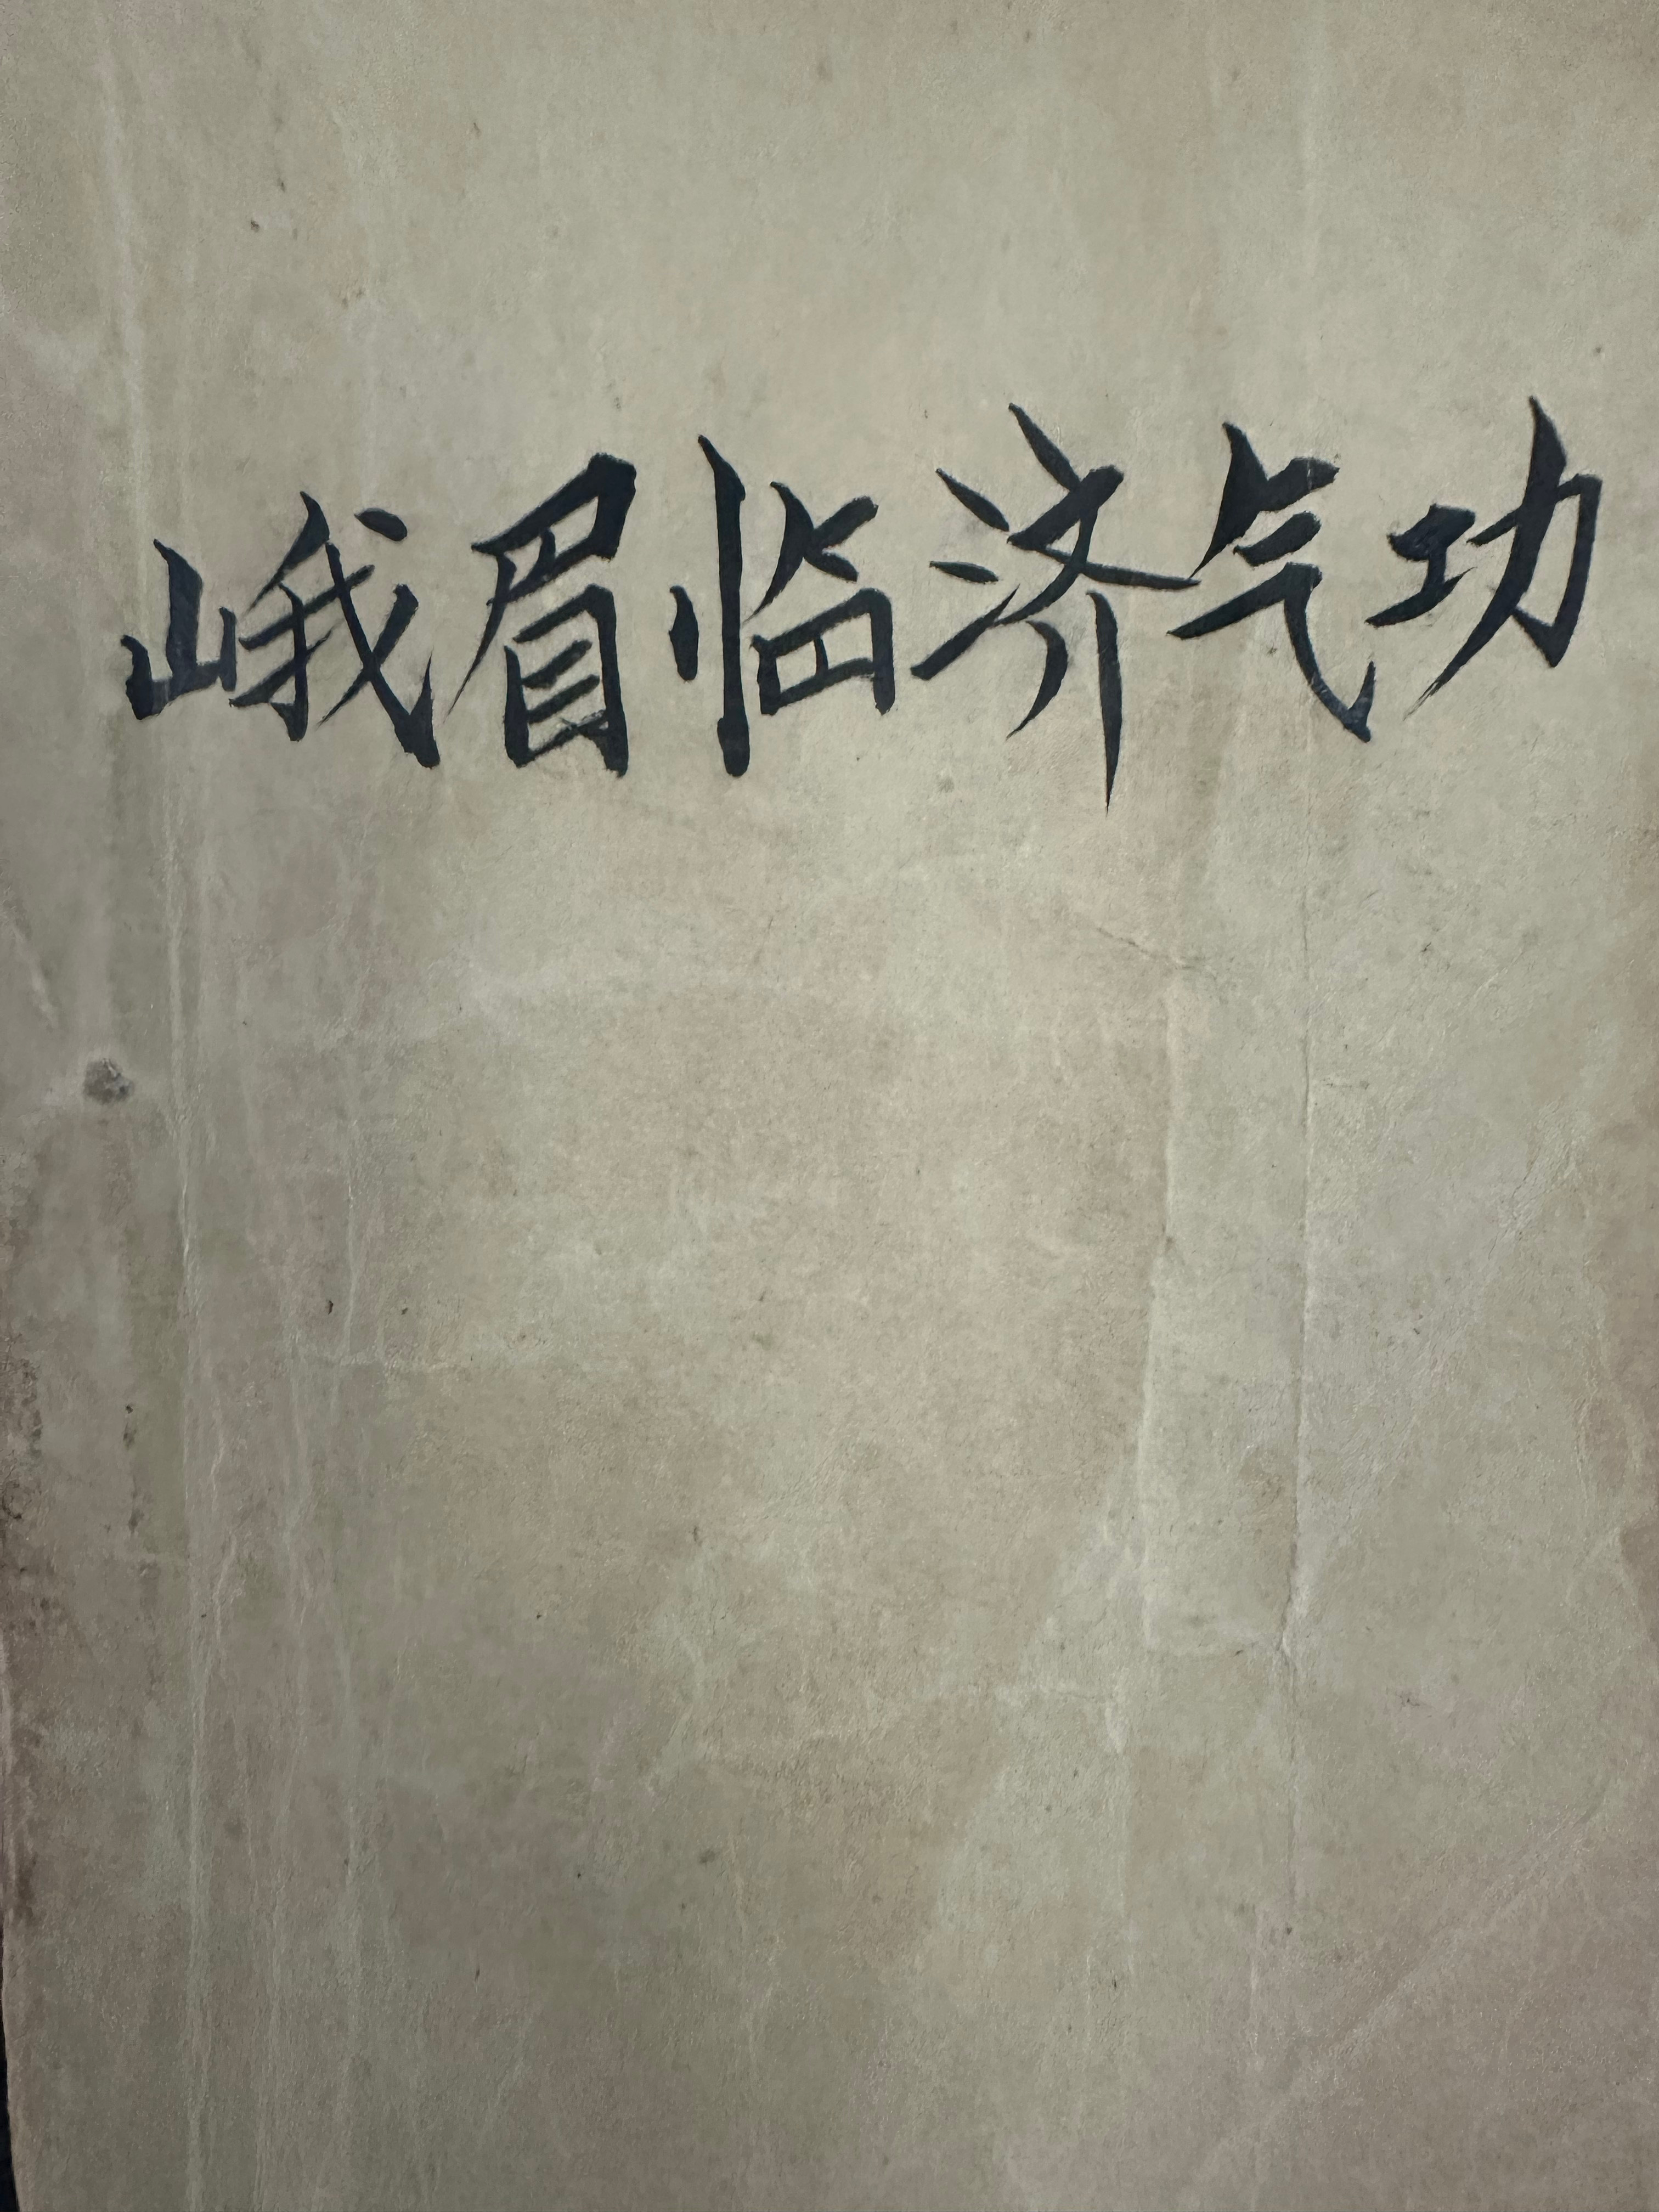 峨眉临济气功